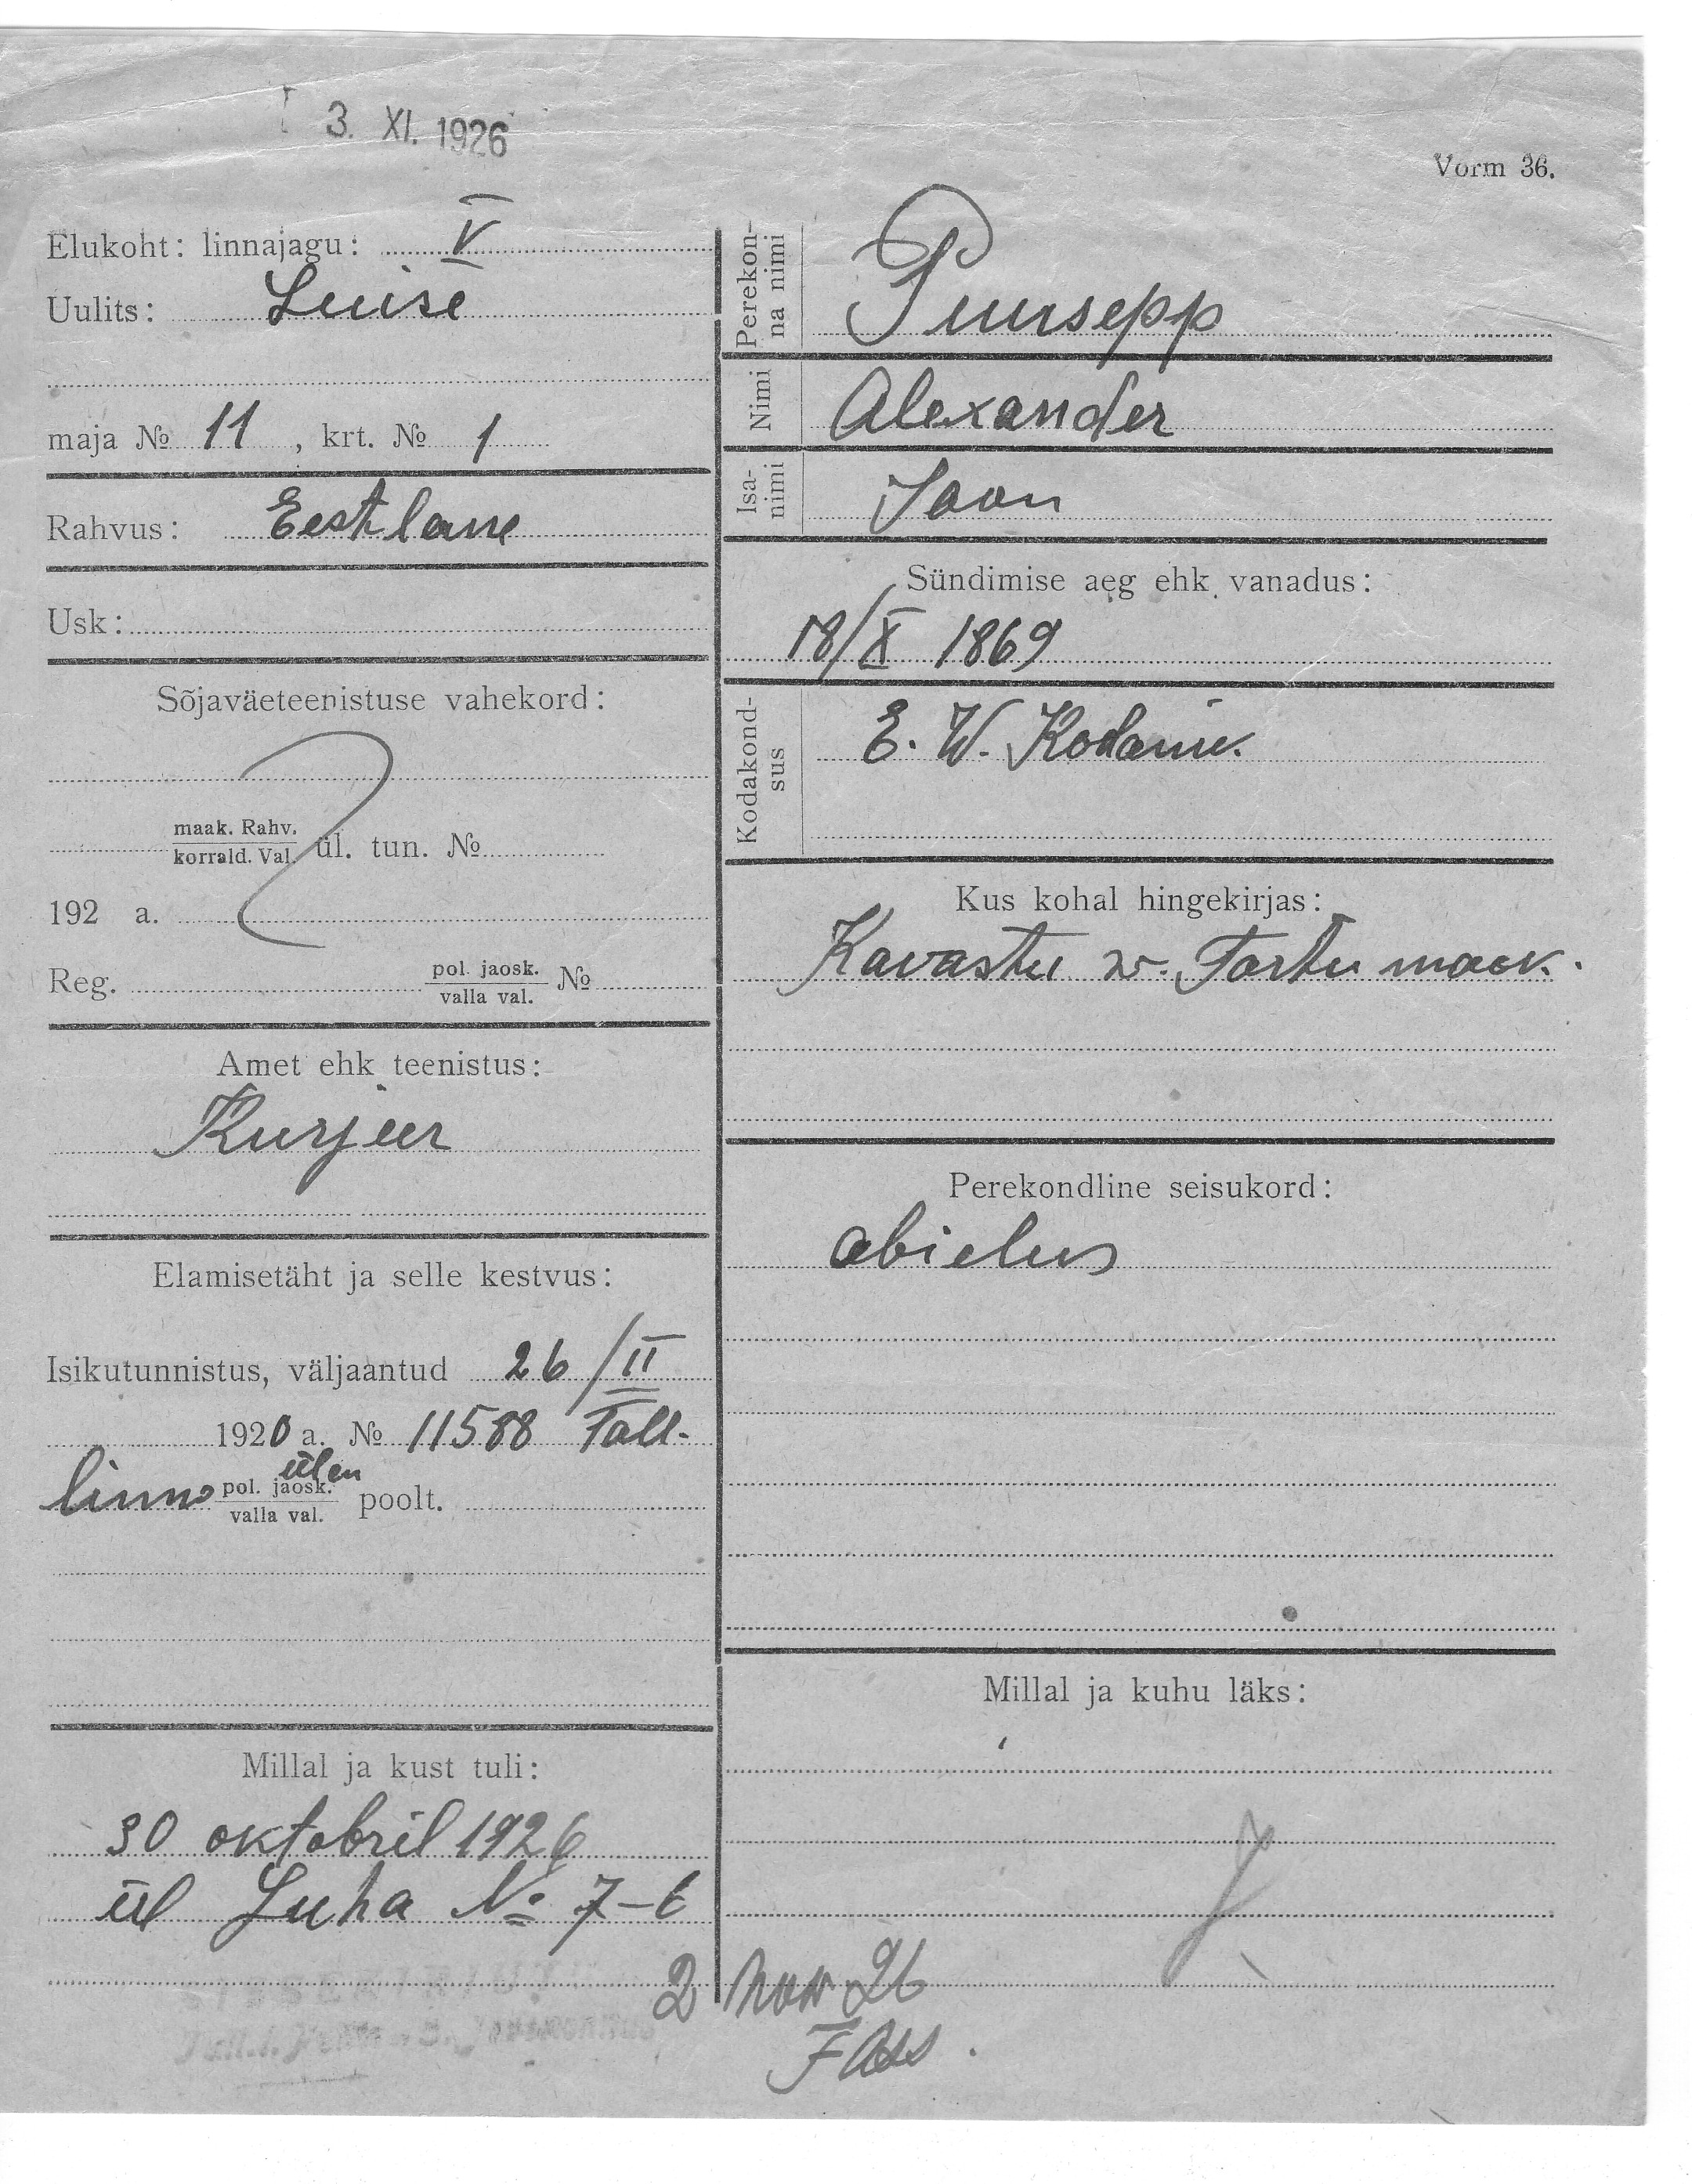 3. XI. 1926
Vorm 36.
Elukoht: linnajagu: V
Uulits: Luise
maja № 11, krt. № 1
Rahvus: Eestlane
Usk:
Sõjaväeteenistuse vahekord:
maak. Rahv.
korrald. Val. ül. tun. №
192 a.
Reg. pol. jaosk. №
valla val.
Amet ehk teenistus:
Kurjeer
Elamisetäht ja selle kestvus:
Isikutunnistus, väljaantud 26/II
1920 a. № 11588 Tall-
ülen
linna pol. jaosk. poolt.
valla val.
Millal ja kust tuli:
30 oktobril 1926
ül Luha № 7-6
Perekon-
na nimi
Puusepp
Nimi
Alexander
Isa-
nimi
Jaan
Sündimise aeg ehk vanadus:
18/X 1869
Kodakond-
sus
E. W. Kodanik.
Kus kohal hingekirjas:
Kavastu w. Tartu maak.
Perekondline seisukord:
abielus
Millal ja kuhu läks:
2 nov 26